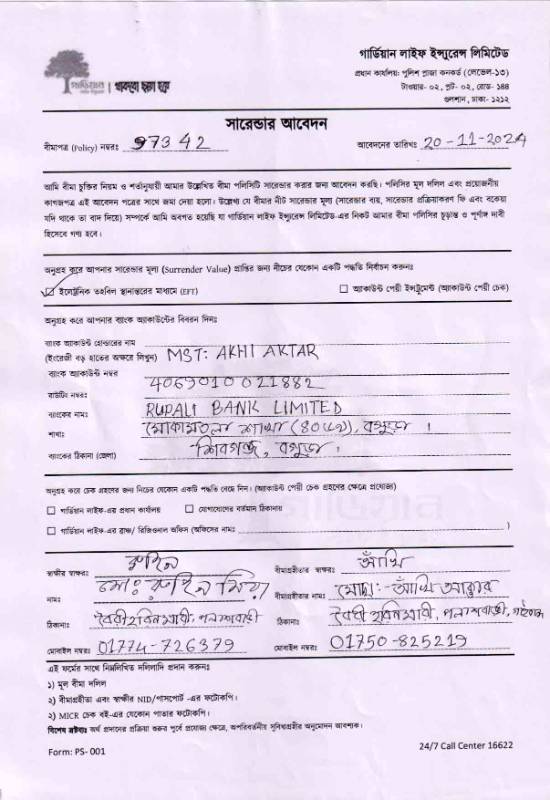 গার্ডিয়ান লাইফ ইন্স্যুরেন্স লিমিটেড
প্রধান কার্যালয়: পুলিশ প্লাজা কনকর্ড (লেভেল-১৩)
টাওয়ার- ০২, প্লট- ০২, রোড- ১৪৪
গুলশান, ঢাকা- ১২১২
গার্ডিয়ান
সারেন্ডার আবেদন
বীমাপত্র (Policy) নম্বরঃ 97342 আবেদনের তারিখঃ 20-11-2024
আমি বীমা চুক্তির নিয়ম ও শর্তানুযায়ী আমার উল্লেখিত বীমা পলিসিটি সারেন্ডার করার জন্য আবেদন করছি। পলিসির মূল দলিল এবং প্রয়োজনীয়
কাগজপত্র এই আবেদন পত্রের সাথে জমা দেয়া হলো। উল্লেখ্য যে বীমার নীট সারেন্ডার মূল্য (সারেন্ডার ব্যয়, সারেন্ডার প্রক্রিয়াকরণ ফি এবং বকেয়া
যদি থাকে তা বাদ দিয়ে) সম্পর্কে আমি অবগত হয়েছি যা গার্ডিয়ান লাইফ ইন্স্যুরেন্স লিমিটেড-এর নিকট আমার বীমা পলিসির চূড়ান্ত ও পূর্ণাঙ্গ দাবী
হিসেবে গণ্য হবে।
অনুগ্রহ করে আপনার সারেন্ডার মূল্য (Surrender Value) প্রাপ্তির জন্য নীচের যেকোন একটি পদ্ধতি নির্বাচন করুনঃ
ইলেক্ট্রনিক তহবিল স্থানান্তরের মাধ্যমে (EFT) অ্যাকাউন্ট পেয়ী ইন্সট্রুমেন্ট (অ্যাকাউন্ট পেয়ী চেক)
অনুগ্রহ করে আপনার ব্যাংক অ্যাকাউন্টের বিবরন দিনঃ
ব্যাংক অ্যাকাউন্ট হোল্ডারের নাম
(ইংরেজী বড় হাতের অক্ষরে লিখুন) MST: AKHI AKTAR
ব্যাংক অ্যাকাউন্ট নম্বর
4069010021882
রাউটিং নম্বরঃ
ব্যাংকের নামঃ RUPALI BANK LIMITED
শাখাঃ মোকামতলা শাখা (৪০৬৯), বগুড়া।
ব্যাংকের ঠিকানা (জেলা) শিবগঞ্জ, বগুড়া।
অনুগ্রহ করে চেক গ্রহণের জন্য নিচের যেকোন একটি পদ্ধতি বেছে নিন। (অ্যাকাউন্ট পেয়ী চেক গ্রহণের ক্ষেত্রে প্রযোজ্য)
গার্ডিয়ান লাইফ-এর প্রধান কার্যালয় যোগাযোগের বর্তমান ঠিকানায়
গার্ডিয়ান লাইফ-এর ব্রাঞ্চ/ রিজিওনাল অফিস (অফিসের নামঃ )
স্বাক্ষীর স্বাক্ষরঃ রুহিন বীমাগ্রহীতার স্বাক্ষরঃ আঁখি
নামঃ মোঃ রুহিন মিয়া বীমাগ্রহীতার নামঃ মোছাঃ-আঁখি আক্তার
ঠিকানাঃ হরিনমারী, পলাশবাড়ী ঠিকানাঃ হরিনমারী, পলাশবাড়ী,
মোবাইল নম্বরঃ 01774-726379 মোবাইল নম্বরঃ 01750-825219
এই ফর্মের সাথে নিম্নলিখিত দলিলাদি প্রদান করুনঃ
১) মূল বীমা দলিল
২) বীমাগ্রহীতা এবং স্বাক্ষীর NID/পাসপোর্ট -এর ফটোকপি।
২) MICR চেক বই-এর যেকোন পাতার ফটোকপি।
বিশেষ দ্রষ্টব্যঃ অর্থ প্রদানের প্রক্রিয়া শুরুর পূর্বে প্রযোজ্য ক্ষেত্রে, অপরিবর্তনীয় সুবিধাগ্রহীর অনুমোদন আবশ্যক।
Form: PS- 001 24/7 Call Center 16622